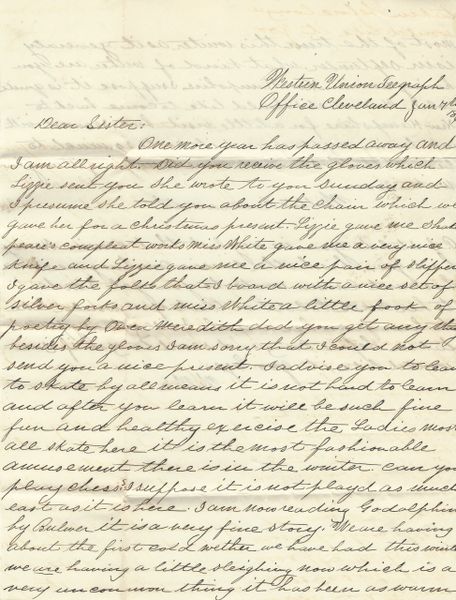 Western Union Telegraph
Office Cleveland Jan 7th
Dear Sister:
One more year has passed away and
I am all right. Did you receive the gloves which
Lizzie sent you she wrote to you Sunday and
I presume she told you about the chair which we
gave her for a christmas present. Lizzie gave me Shaks
peare's compleat works Miss White gave me a very nice
knife and Lizzie gave me a nice pair of slippers
I gave the folks that I board with a nice set of
silver forks and miss White a little book of
poetry by Owen Meredith did you get any thing
besides the gloves I am sorry that I could not
send you a nice present. I advise you to learn
to skate by all means it is not hard to learn
and after you learn it will be such fine
fun and healthy exercise the Ladies most
all skate here it is the most fashionable
amusement there is in the winter. can you
play chess? I suppose it is not playd as much
east as it is here. I am now reading Godolphin
by Bulwer it is a very fine story. We are having
about the first cold wether we have had this winter
we are having a little sleighing now which is a
very uncommon thing it has been as warm